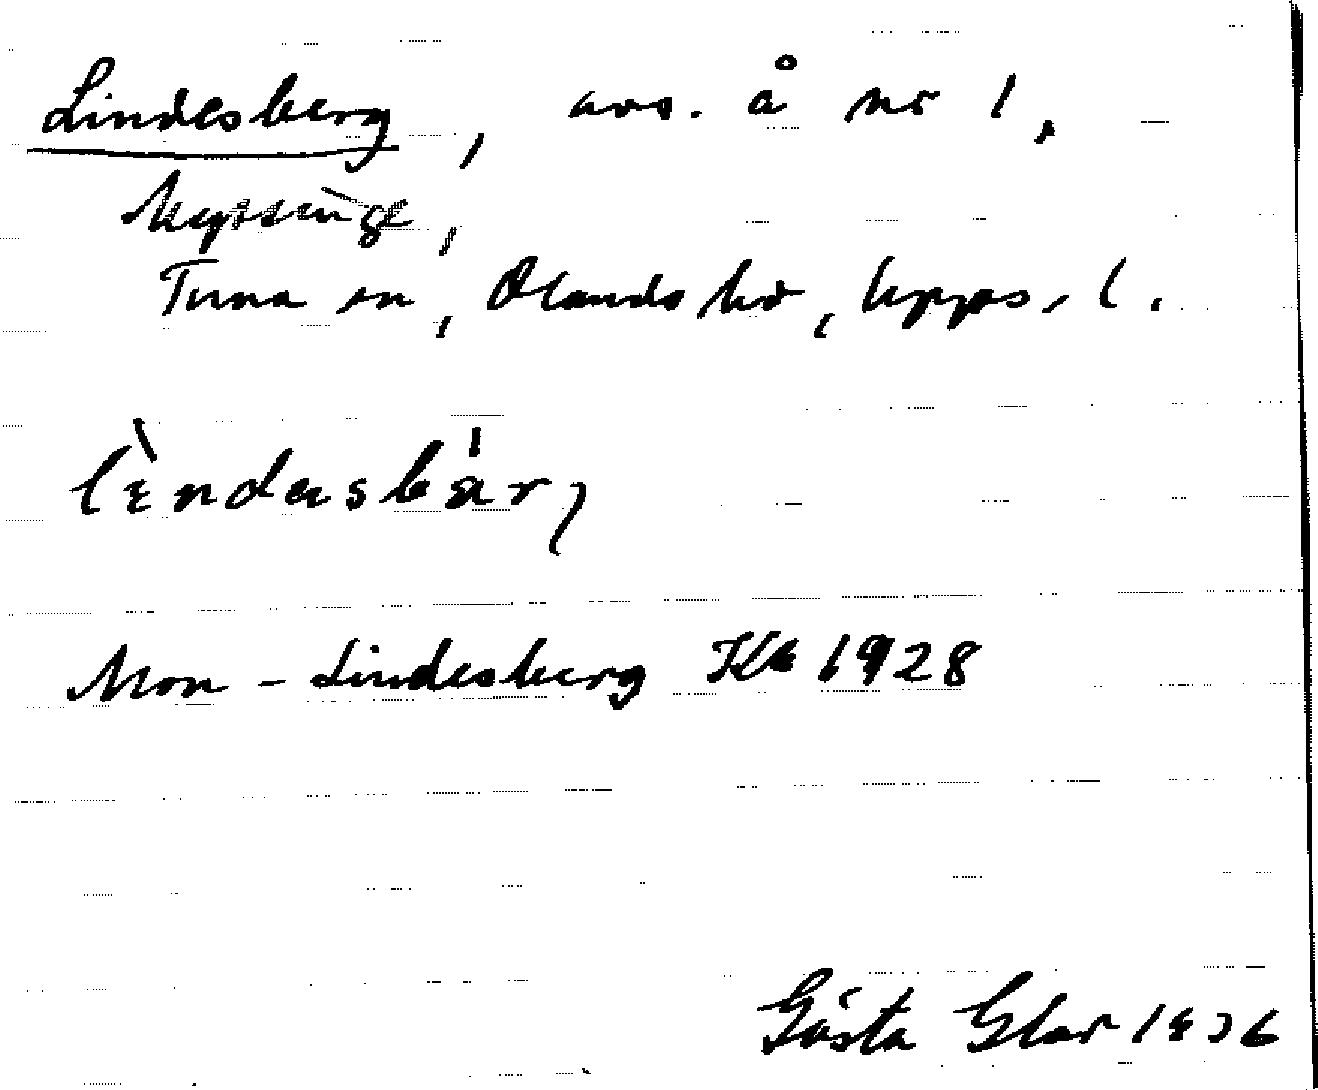 Lindesberg, avs. å nr 1,
Tuna sn, Olands hd, Upps. l.
lìndasbär,
Mon - Lindesberg Kb 1928
Gösta Glar 1936